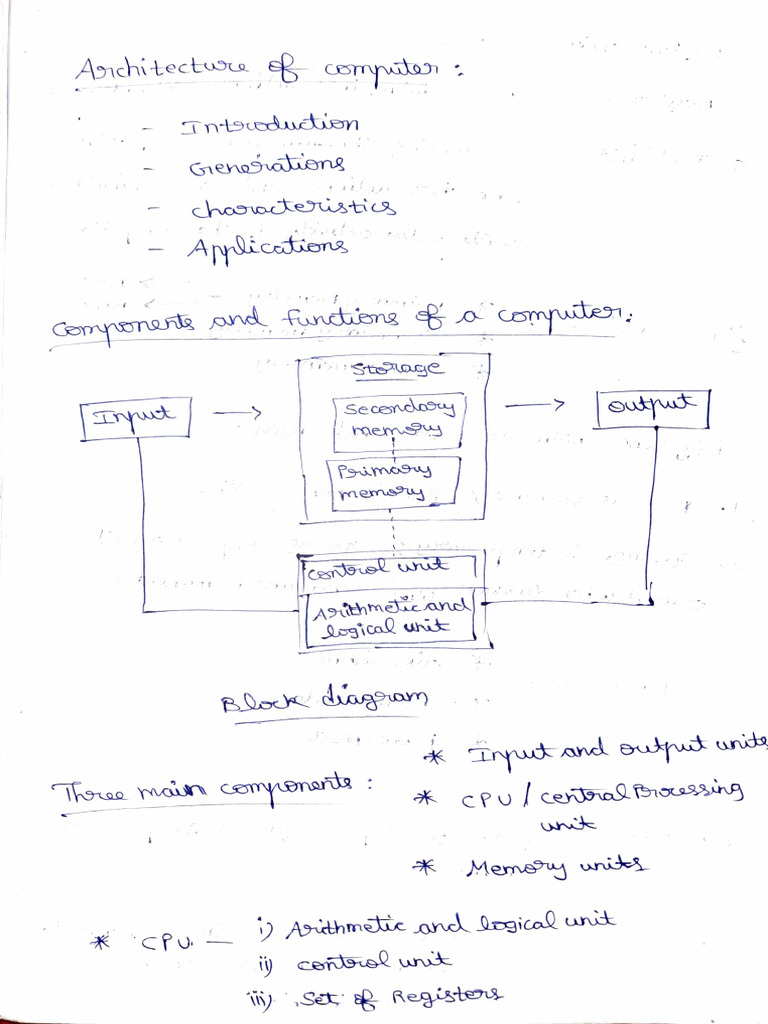 Architecture of computer :
- Introduction
- Generations
- characteristics
- Applications
Components and functions of a computer:
Storage
Input
Secondary
memory
Output
Primary
memory
control unit
Arithmetic and
logical unit
Block diagram
* Input and output units
Three main components :
* CPU / central Processing
unit
* Memory units
* CPU - i) Arithmetic and logical unit
ii) control unit
iii) Set of Registers